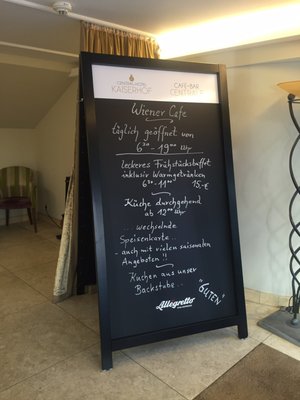 CENTRAL-HOTEL
KAISERHOF
CAFE•BAR
CENTRAL
Wiener Cafe
täglich geöffnet von
6³⁰ - 19⁰⁰ Uhr
leckeres Frühstücksbuffet
inklusiv Warmgetränken
6³⁰ - 11⁰⁰ 15,-€
Küche durchgehend
ab 12⁰⁰ Uhr
... wechselnde
Speisenkarte ..
- auch mit vielen saisonalen
Angeboten !!
Kuchen aus unser
Backstube ..
"GUTEN"
Allegretto